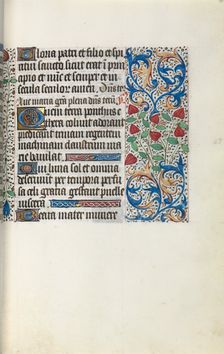 Gloria patri et filio et spi
ritui sancto sicut erat i prin
cipio et nūc et semper et in
secula seculoꝝ amen. Aue
maria grā plena dn̄s tecū.
Quem terra ponthus e
thera colunt adorant
predicant trinam regentem
machinam claustrum ma
rie baiulat
Cui luna sol et omnia
deseruiunt per tempora perfu
sa celi gratia gestant puelle
uiscera
Beata mater munere